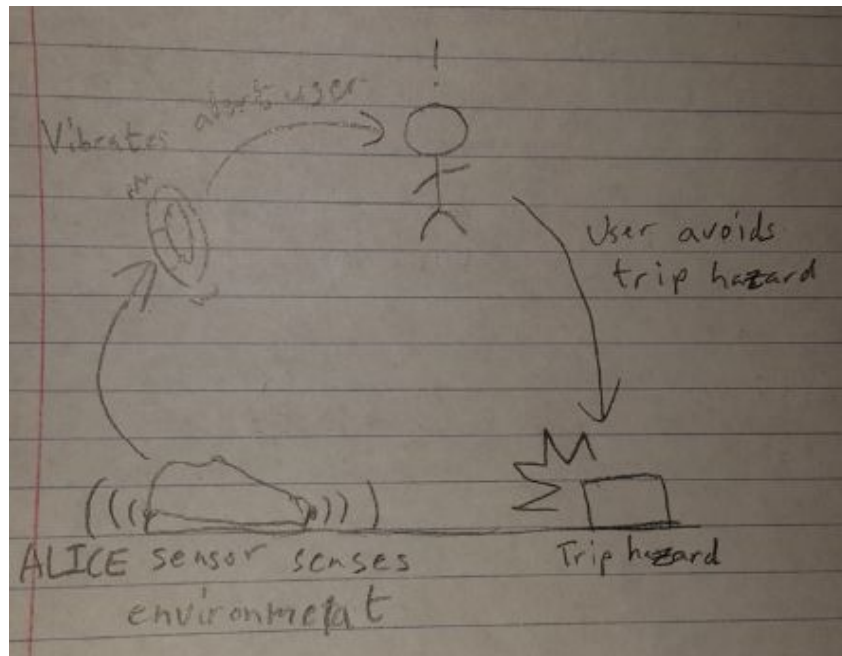 !
Vibrates alerts user
User avoids
trip hazard
ALICE sensor senses
environmetat
Trip hazard